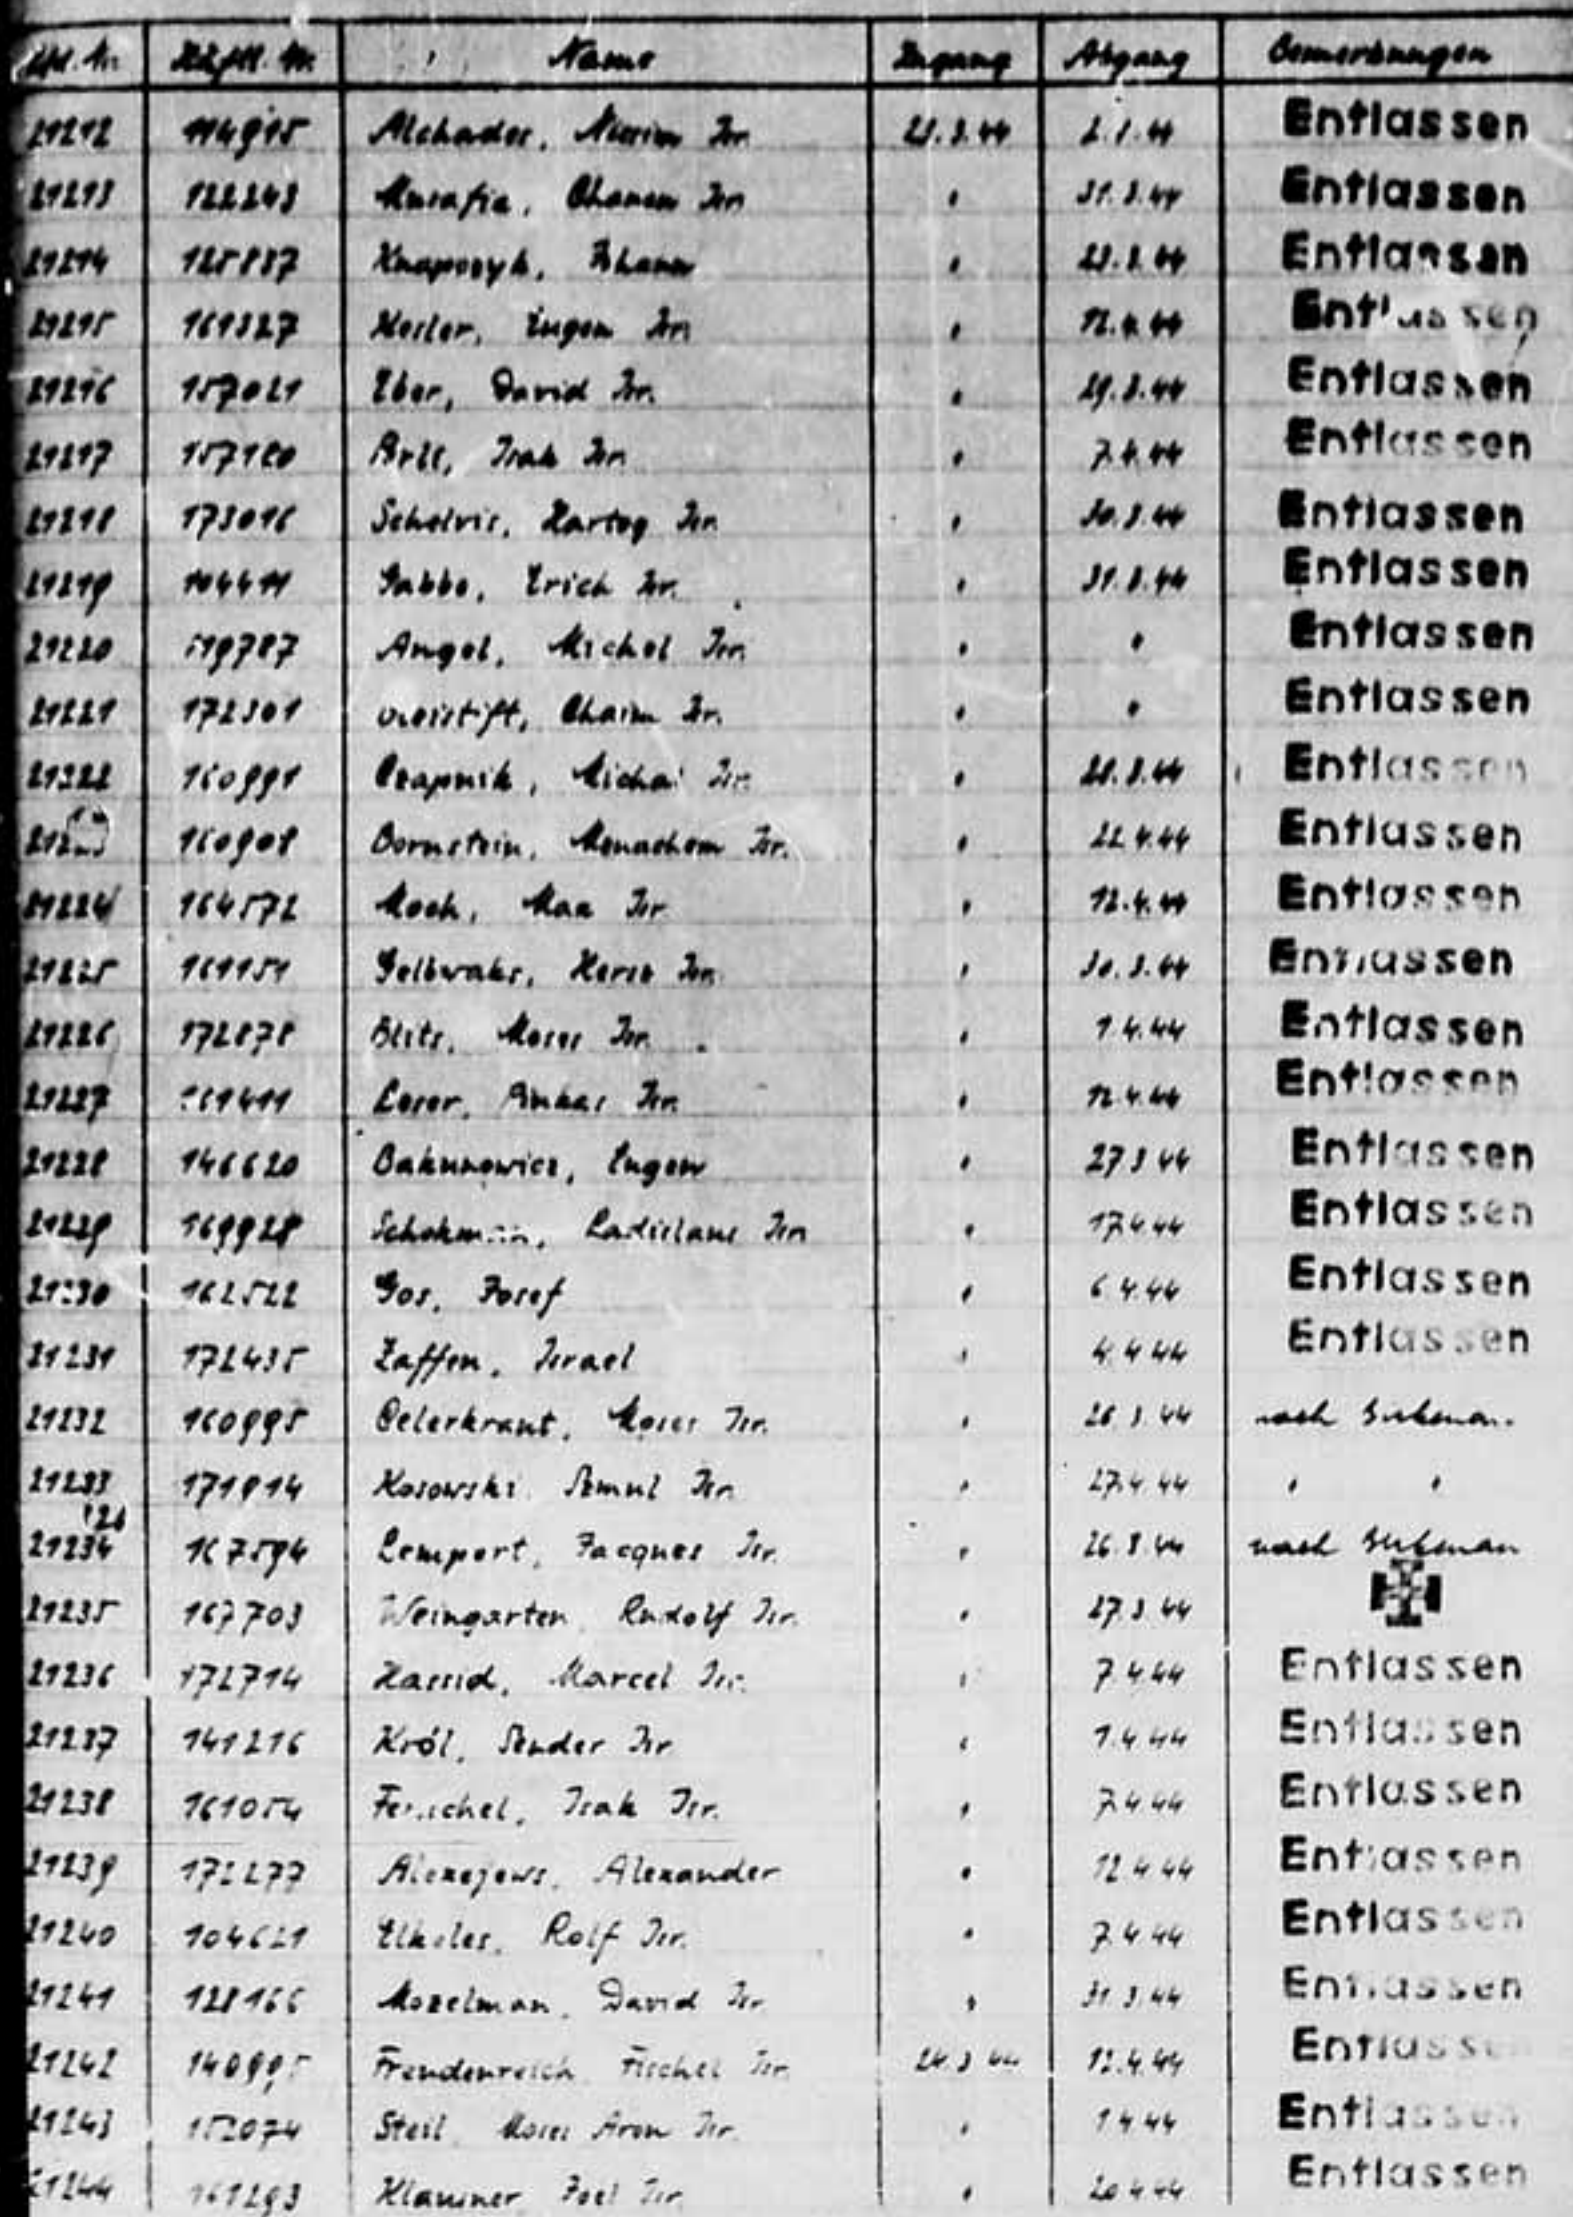 Lfd. Nr. Häftl. Nr. Name Zugang Abgang Bemerkungen
21212 114915 Alchades, Nissim Isr. 23.3.44 Entlassen
21213 122243 Musafia, Isr. " 31.3.44 Entlassen
21214 125837 " Entlassen
21215 161327 Eugen Isr. " 12.4.44 Entlassen
21216 157021 Eber, David Isr. " 29.3.44 Entlassen
21217 Isak Isr. " 7.4.44 Entlassen
21218 173016 Schelvis, Hartog Isr. " 30.3.44 Entlassen
21219 104411 Gabbe, Erich Isr. " 31.3.44 Entlassen
21220 119787 Angel, Michel Isr. " " Entlassen
21221 172301 Chaim Isr. " " Entlassen
21222 160991 Czapnik, Isr. " 28.3.44 Entlassen
160908 Bornstein, Menachem Isr. " 22.4.44 Entlassen
21224 164572 Moch, Max Isr. " 12.4.44 Entlassen
21225 161151 Gelbwaks, Hersz Isr. " 30.3.44 Entlassen
21226 172878 Blits, Moses Isr. " 1.4.44 Entlassen
21227 161411 Leser, Pinkas Isr. " 12.4.44 Entlassen
21228 146620 Bakunowicz, Eugen " 27.3.44 Entlassen
21229 169928 Ladislaus Isr. " 17.4.44 Entlassen
21230 162522 Gos, Josef " 6.4.44 Entlassen
21231 172435 Zaffen, Israel " 4.4.44 Entlassen
21232 160995 Celerkraut, Moses Isr. " 26.3.44 nach Birkenau
21233 171914 Kosowski, Szmul Isr. " 27.4.44 " "
21234 167594 Lempert, Jacques Isr. " 26.3.44 nach Birkenau
21235 167703 Weingarten, Rudolf Isr. " 27.3.44
21236 172714 Hassid, Marcel Isr. " 7.4.44 Entlassen
21237 141216 Król, Szender Isr. " 1.4.44 Entlassen
21238 161054 Isak Isr. " 7.4.44 Entlassen
21239 172277 Alexejews, Alexander " 12.4.44 Entlassen
21240 104621 Elkeles, Rolf Isr. " 7.4.44 Entlassen
21241 128166 Mozelman, David Isr. " 31.3.44 Entlassen
21242 Freudenreich, Fischel Isr. 24.3.44 12.4.44 Entlassen
21243 152074 Steil, Moses Aron Isr. " 1.4.44 Entlassen
21244 161293 Klausner, Joel Isr. " 20.4.44 Entlassen